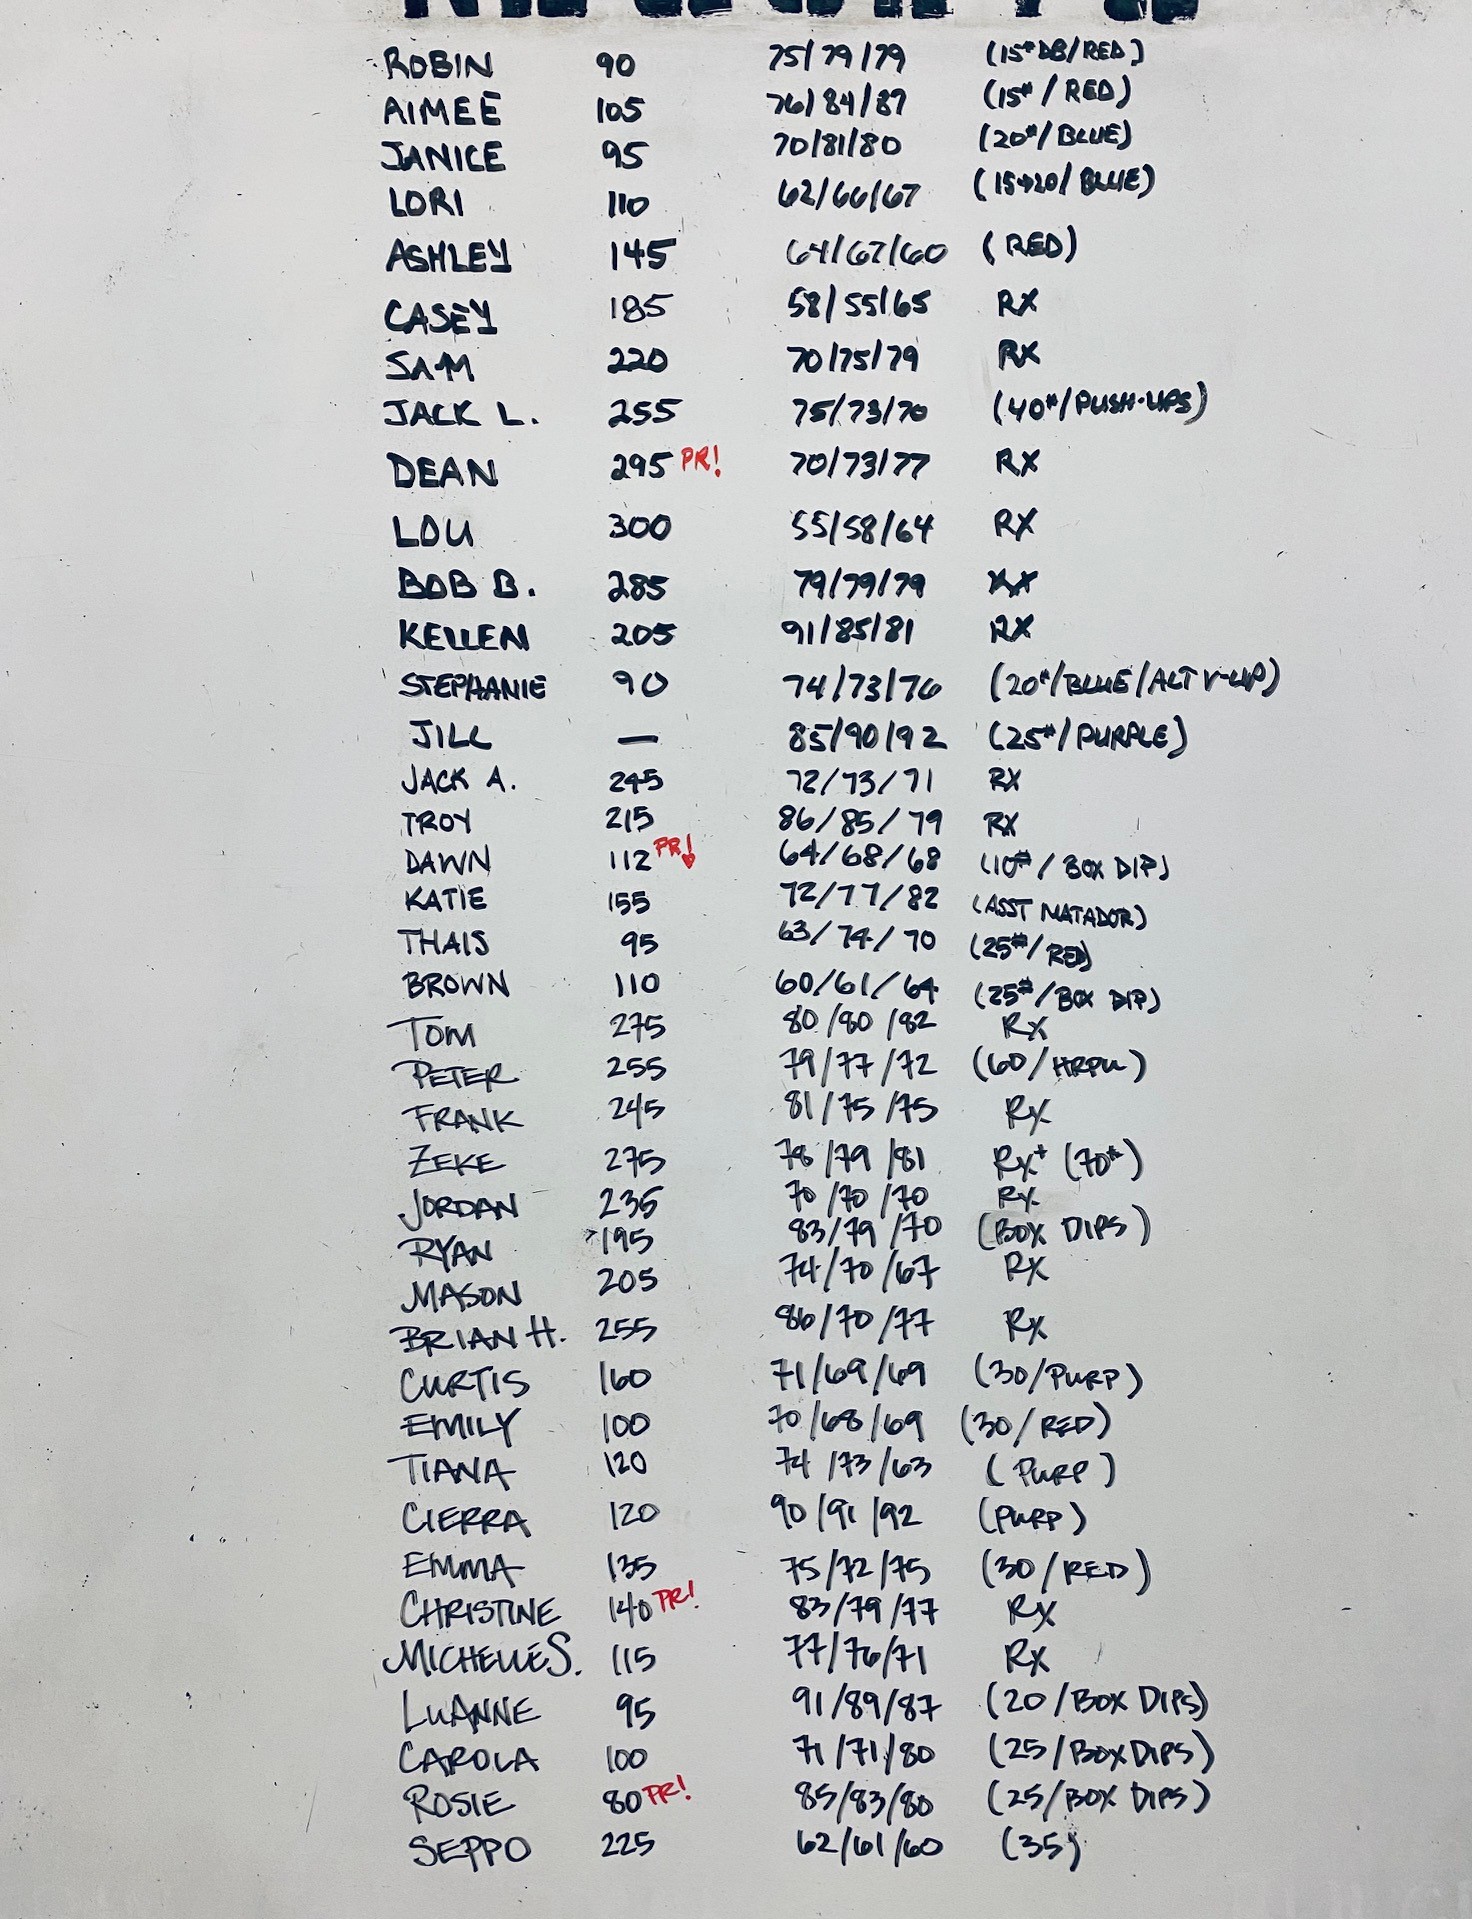 ROBIN 90 75/79/79 (15# DB/RED)
AIMEE 105 76/84/87 (15#/RED)
JANICE 95 70/81/80 (20#/BLUE)
LORI 110 62/66/67 (15+20/BLUE)
ASHLEY 145 64/67/60 (RED)
CASEY 185 58/55/65 RX
SAM 220 70/75/79 RX
JACK L. 255 75/73/70 (40#/PUSH-UPS)
DEAN 295 PR! 70/73/77 RX
LOU 300 55/58/64 RX
BOB B. 285 79/79/79
KELLEN 205 91/85/81 RX
STEPHANIE 90 74/73/76 (20#/BLUE/ALT V-UP)
JILL — 85/90/92 (25#/PURPLE)
JACK A. 245 72/73/71 RX
TROY 215 86/85/79 RX
DAWN 112 PR! 64/68/68 (10#/BOX DIP)
KATIE 155 72/77/82 (ASST MATADOR)
THAIS 95 63/74/70 (25#/RED)
BROWN 110 60/61/64 (25#/BOX DIP)
TOM 275 80/80/82 RX
PETER 255 79/77/72 (60/HRPU)
FRANK 245 81/75/75 RX
ZEKE 275 78/79/81 RX+ (70#)
JORDAN 235 70/70/70 RX
RYAN 195 83/79/70 (BOX DIPS)
MASON 205 74/70/67 RX
BRIAN H. 255 86/70/77 RX
CURTIS 160 71/69/69 (30/PURP)
EMILY 100 70/68/69 (30/RED)
TIANA 120 74/73/63 (PURP)
CIERRA 120 90/91/92 (PURP)
EMMA 135 75/72/75 (30/RED)
CHRISTINE 140 PR! 83/79/77 RX
MICHELLE S. 115 77/76/71 RX
LUANNE 95 91/89/87 (20/BOX DIPS)
CAROLA 100 71/71/80 (25/BOX DIPS)
ROSIE 80 PR! 85/83/80 (25/BOX DIPS)
SEPPO 225 62/61/60 (35)